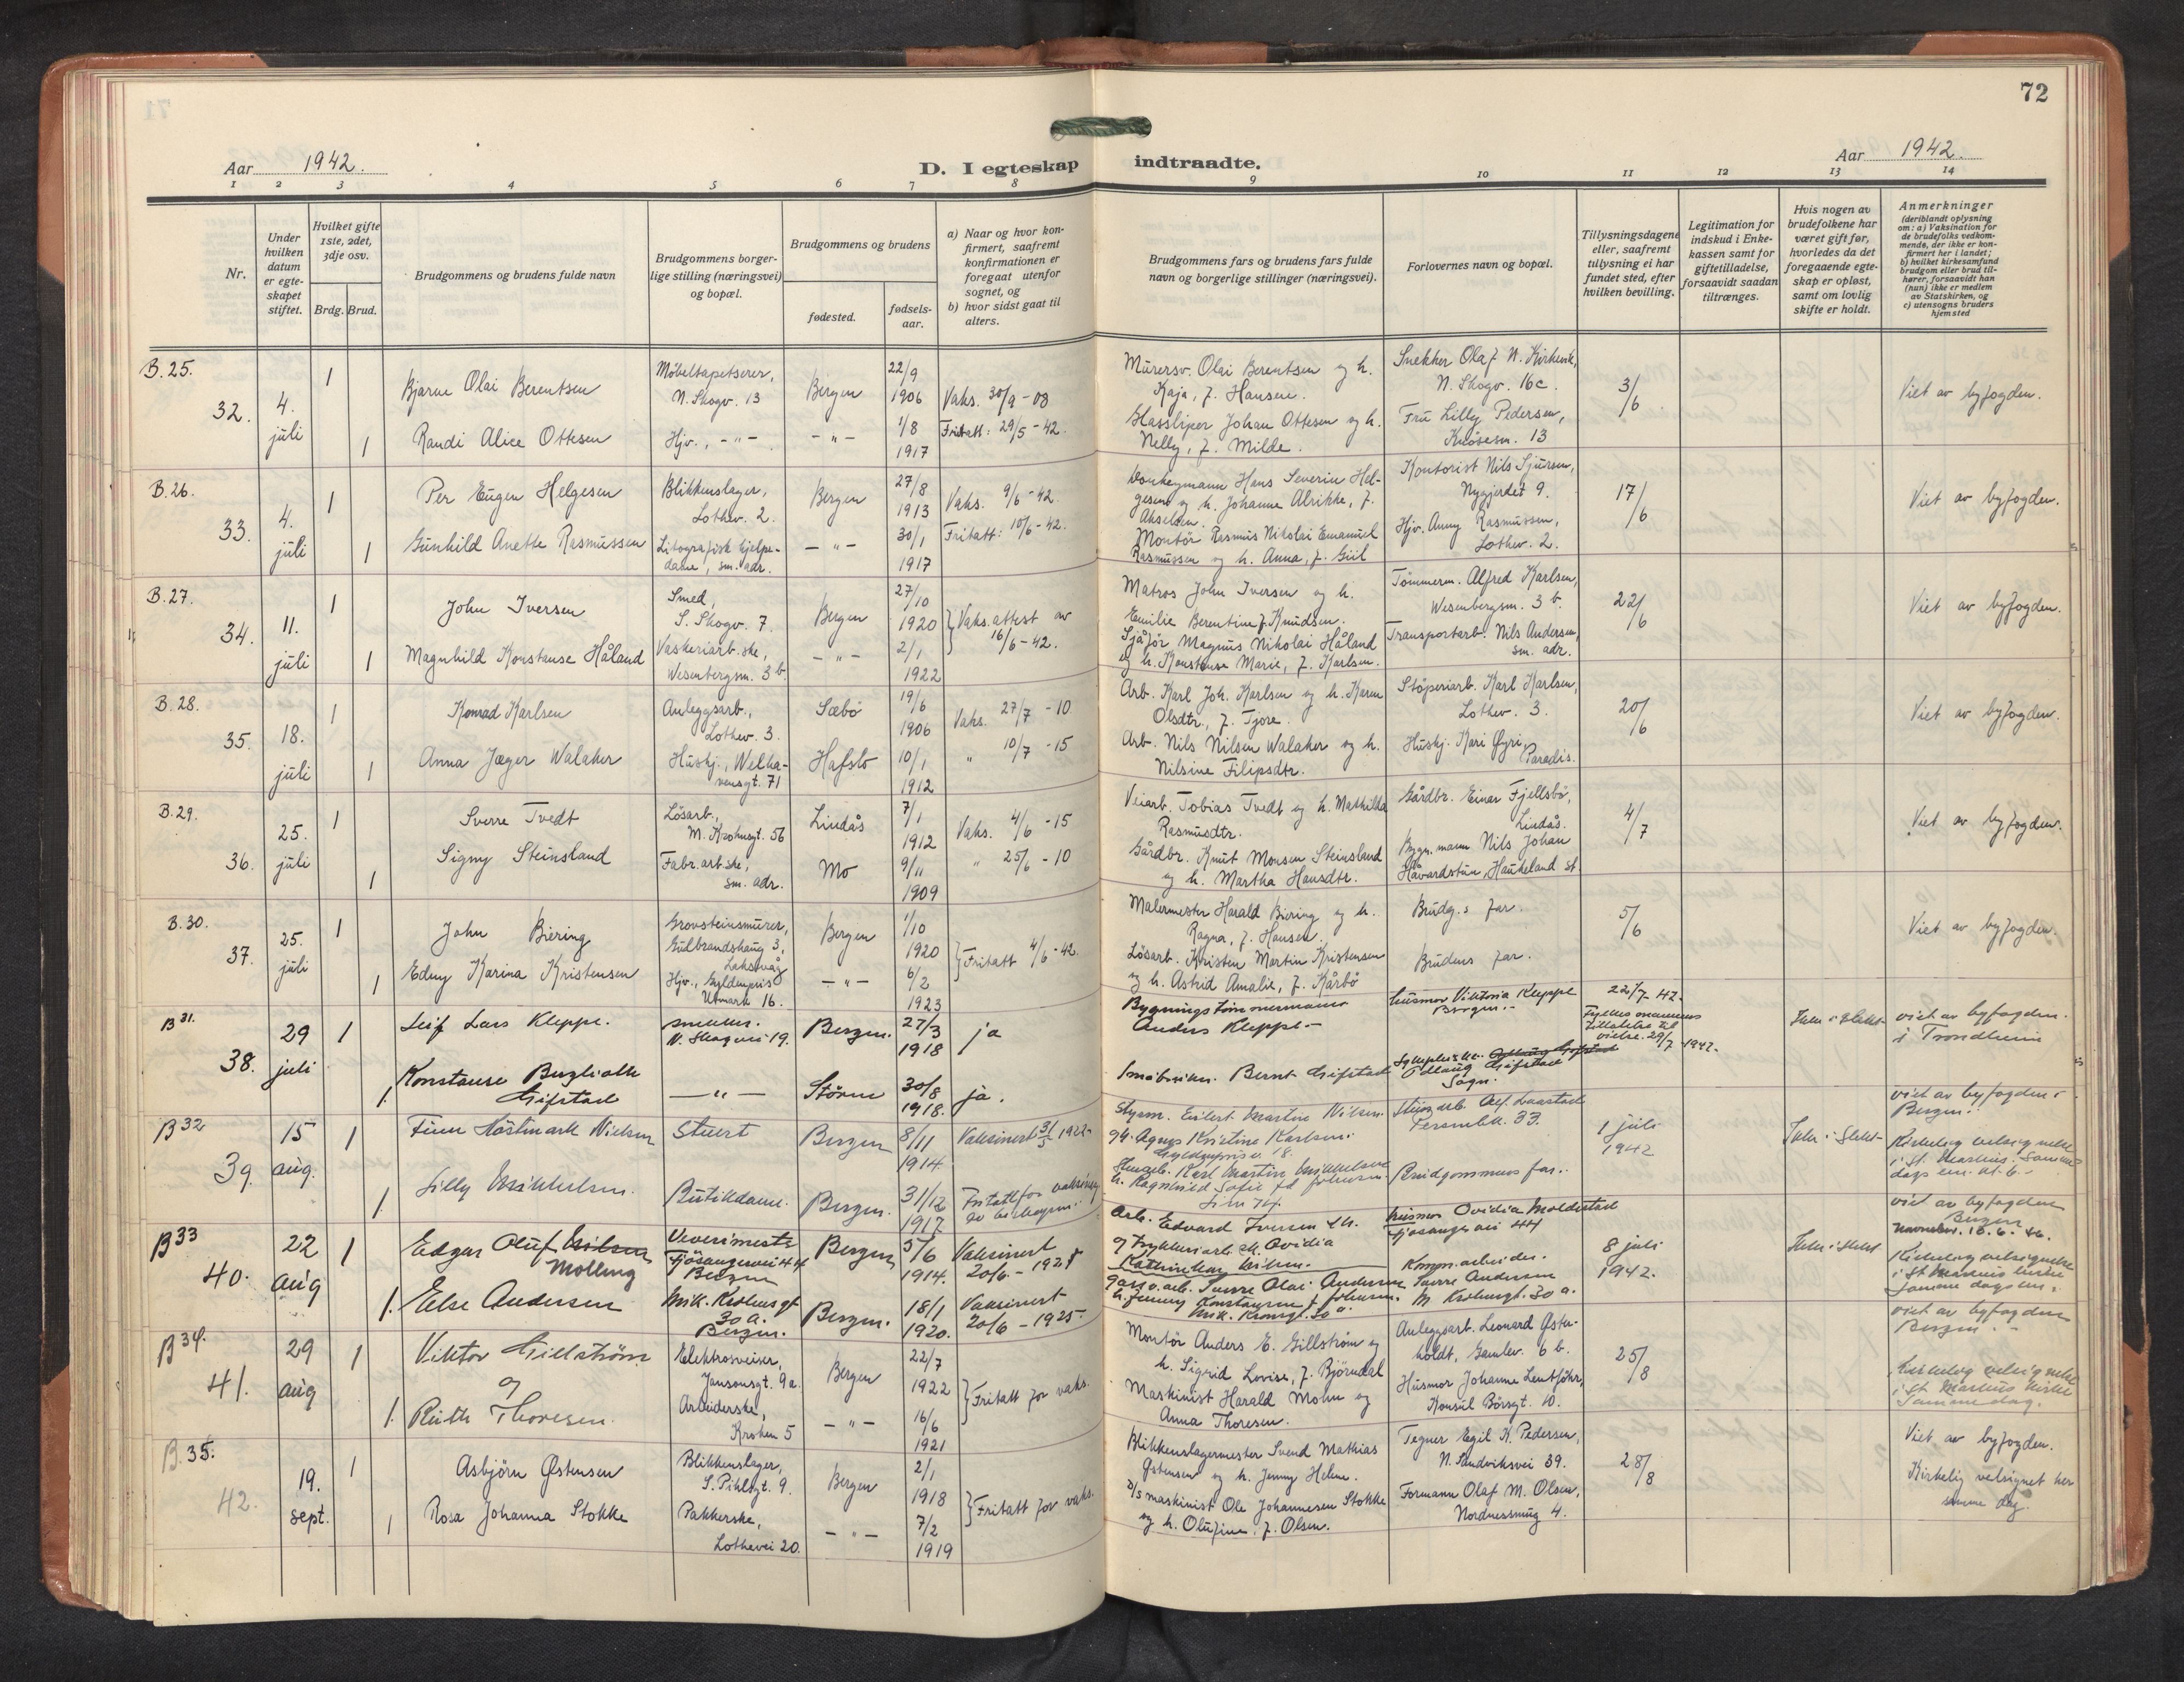 72
Aar 1942.
D. I egteskap
indtraadte.
Aar 1942.
1 2 3 4 5 6 7 8 9 10 11 12 13 14
Nr.
Under hvilken datum er egteskapet stiftet.
Hvilket gifte 1ste, 2det, 3dje osv.
Brdg. Brud.
Brudgommens og brudens fulde navn
Brudgommens borgerlige stilling (næringsvei) og bopæl.
Brudgommens og brudens
fødested.
fødselsaar.
a) Naar og hvor konfirmert, saafremt konfirmationen er foregaat utenfor sognet, og
b) hvor sidst gaat til alters.
Brudgommens fars og brudens fars fulde navn og borgerlige stillinger (næringsvei).
Forlovernes navn og bopæl.
Tillysningsdagene eller, saafremt tillysning ei har fundet sted, efter hvilken bevilling.
Legitimation for indskud i Enkekassen samt for giftetilladelse, forsaavidt saadan tiltrænges.
Hvis nogen av brudefolkene har været gift før, hvorledes da det foregaaende egteskap er opløst, samt om lovlig skifte er holdt.
Anmerkninger
(deriblandt oplysning om: a) Vaksination for de brudefolks vedkommende, der ikke er konfirmert her i landet; b) hvilket kirkesamfund brudgom eller brud tilhører, forsaavidt han (hun) ikke er medlem av Statskirken, og c) utensogns bruders hjemsted
B.25.
32.
4. juli
1
Bjarne Olai Berentsen
Møbeltapetserer, N. Skogv. 13
Bergen
22/9 1906
Vaks. 30/9 - 08
Murersv. Olai Berentsen og h. Kaja, f. Hansen.
Snekker Olaf N. Kirkevik, N. Skogv. 16c.
3/6
Viet av byfogden.
1
Randi Alice Ottesen
Hjv., -"-
-"-
1/8 1917
Fritatt: 29/5 - 42.
Glassliper Johan Ottesen og h. Nelly, f. Milde.
Fru Lilly Pedersen, Knøsesm. 13
B.26.
33.
4. juli
1
Per Eugen Helgesen
Blikkenslager, Lothev. 2.
Bergen
27/8 1913
Vaks. 9/6 - 42
Donkeymann Hans Severin Helgesen og h. Johanne Alrikke, f. Akselsen.
Kontorist Nils Sjursen, Nygjerdet 9.
17/6
Viet av byfogden.
1
Gunhild Anette Rasmussen
Litografisk hjelpedame, sm. adr.
-"-
30/1 1917
Fritatt: 10/6 - 42.
Montör Rasmus Nikolai Emanuel Rasmussen og h. Anna, f. Giil
Hjv. Anny Rasmussen, Lothev. 2.
B.27.
34.
11. juli
1
John Iversen
Smed, S. Skogv. 7.
Bergen
27/10 1920
Vaks. attest av 16/6 - 42.
Matros John Iversen og h. Emilie Berentine f. Knudsen.
Tömmerm. Alfred Karlsen, Wesenbergsm. 3 b.
22/6
Viet av byfogden.
1
Magnhild Konstanse Håland
Vaskeriarb.ske, Wesenbergsm. 3 b.
-"-
2/1 1922
Sjåfør Magnus Nikolai Håland og h. Konstanse Marie, f. Karlsen.
Transportarb. Nils Andersen, sm. adr.
B.28.
35.
18. juli
1
Konrad Karlsen
Anleggsarb., Lothev. 3.
Sæbö
19/6 1906
Vaks. 27/7 - 10
Arb. Karl Joh. Karlsen og h. Karen Olsdtr., f. Tjore.
Støperiarb. Karl Karlsen, Lothev. 3.
20/6
Viet av byfogden.
1
Anna Jæger Walaker
Hushj., Welhavensgt. 71
Hafslo
10/1 1912
" 10/7 - 15
Arb. Nils Nilsen Walaker og h. Nilsine Filipsdtr.
Hushj. Kari Øyri, Paradis.
B.29.
36.
25. juli
1
Sverre Tvedt
Lösarb., M. Krohnsgt. 56
Lindås
7/1 1912
Vaks. 4/6 - 15
Veiarb. Tobias Tvedt og h. Mathilda Rasmusdtr.
Gårdbr. Einar Fjellsbö, Lindås.
4/7
Viet av byfogden.
1
Signy Steinsland
Fabr.arb.ske, sm. adr.
Mo
9/11 1909
" 25/6 - 10
Gårdbr. Knut Monsen Steinsland og h. Martha Hansdtr.
Bygn.mann Nils Johan Håvardstun, Haukeland st
B.30.
37.
25. juli
1
John Biering
Grovsteinsmurer, Gulbrandshaug 3, Laksevåg
Bergen
1/10 1920
Fritatt 4/6 - 42.
Malermester Harald Biering og h. Ragna, f. Hansen.
Brudg.s far.
5/6
Viet av byfogden.
1
Edny Karina Kristensen
Hjv., Gyldenpris Utmark 16.
-"-
6/2 1923
Lösarb. Kristen Martin Kristensen og h. Astrid Amalie, f. Kårbö
Brudens far.
B 31.
38.
29 juli
1
Leif Lars Kleppe.
snekker. N. Skogvei 19.
Bergen.
27/3 1918
ja
Bygningstömmermann Anders Kleppe -
husmor Viktoria Kleppe Bergen.-
22/7-42.
Fylkesmannens tillatelse til vielse. 29/7 1942.
Ikke i slekt-
viet av byfogden i Trondheim
1.
Konstanse Gifstad
-"-
Stören
30/8 1918.
ja.
Småbruker. Bernt Gifstad
Odlaug Gifstad Sogn.
B 32
39.
15 aug.
1
Finn Höstmark Nielsen
Stuert
Bergen
8/11 1914
Vaksinert 31/5 1922-
Styrm. Eilert Martin Nilsen
gt. Agnes Kristine Karlsen. Gyldenpris v. 18.
33.
1 juli 1942
Ikke i slekt-
viet av byfogden i Bergen.
Kirkelig velsignelse i St. Markus. Samme dags em. kl. 6.-
1
Lilly Mikkelsen.
Butikdame.
Bergen.
31/12 1917
Fritatt for vaksinering
Karl Martin Mikkelsen h. Ragnhild Sofie fd Johnsen
Brudgommens far.
B 33
40.
22 aug
1
Edgar Oluf Nilsen Molling
Vevermester Fjösangervei 44 Bergen
Bergen
5/6 1914.
Vaksinert 20/6 - 1921
Arb. Edvard Iversen
Ovidia Kathrinka Nilsen.
husmor Ovidia Moldestad Fjösangervei 44
8 juli 1942.
Ikke i slekt
viet av byfogden Bergen
Kirkelig velsignelse i St Markus kirke samme dags em.
1.
Else Andersen
Mik. Krohnsgt 30 a. Bergen.
Bergen.
18/1 1920.
Vaksinert 20/6 - 1925-
Gassv.arb. Sverre Olai Andersen h. Jenny Konstanse f. Johnsen. Mik. Kronsgt. 30 a.
Komm.arbeider. Sverre Andersen M. Krohnsgt. 30 a.
B 34.
41.
29 aug
1
Viktor Gillström
og
Elektrosveiser, Jansonsgt. 9a.
Bergen
22/7 1922
Fritatt for vaks.
Montör Anders E. Gillström og h. Sigrid Lovise, f. Björndal
Anleggsarb. Leonard Østerholdt, Gamlev. 6 b.
25/8
viet av byfogden Bergen.-
Kirkelig velsignelse i St Markus kirke samme dag.
1.
Ruth Thoresen.
Arbeiderske, Kroken 5
-"-
16/6 1921
Maskinist Harald Mohn og Anna Thoresen.
Husmor Johanne Lentföhr, Konsul Börsgt. 10.
B.35.
42.
19. sept.
1
Asbjörn Østensen
Blikkenslager, S. Pihlsgt. 9.
Bergen
2/1 1918
Fritatt for vaks.
Blikkenslagermester Svend Mathias Østensen og h. Jenny Helene.
Tegner Egil K. Pedersen, N. Sandviksvei 39.
28/8
Viet av byfogden.
Kirkelig velsignet her samme dag.
1
Rosa Johanna Stokke
Pakkerske, Lothevei 20.
-"-
7/2 1919
D/s maskinist Ole Johannesen Stokke og h. Olufine, f. Olsen.
Formann Olaf M. Olsen, Nordnessmug 4.